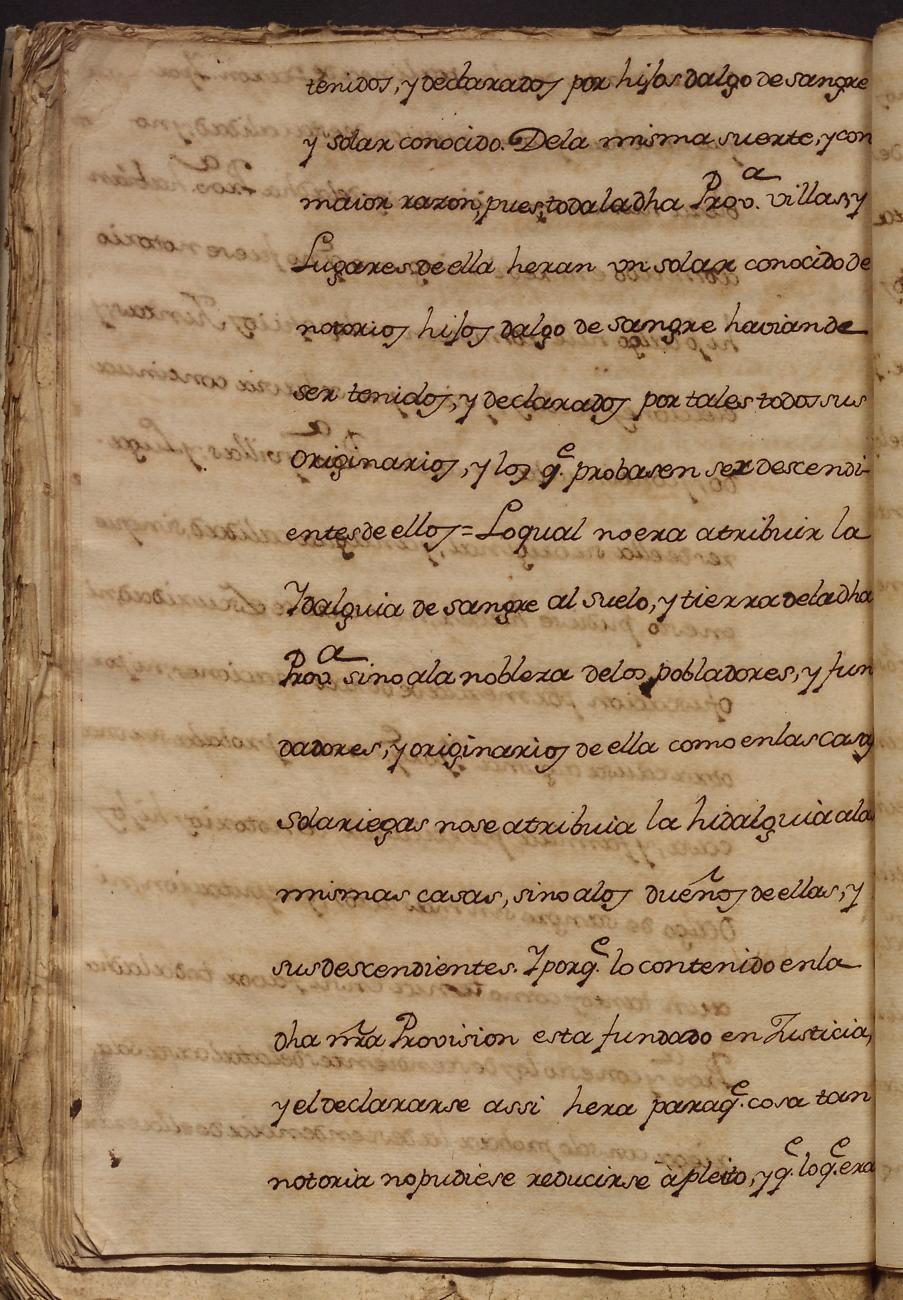 tenidos, y declarados por hijos dalgo de sangre
y solar conocido. De la misma suerte, y con
maior razon, pues toda la dha Prov.ª villas, y
Lugares de ella heran vn solar conocido de
notorios hijos dalgo de sangre havian de
ser tenidos, y declarados por tales todos sus
originarios, y los q.e probasen ser descendi-
entes de ellos = Lo qual no era atribuir la
Ydalguia de sangre al suelo, y tierra de la dha
Prov.ª sino a la nobleza de los pobladores, y fun
dadores, y originarios de ella como en las casas
solariegas no se atribuia la hidalguia a las
mismas casas, sino a los dueños de ellas, y
sus descendientes. Y porq.e lo contenido en la
dha nra Provision esta fundado en Justicia,
y el declararse assi hera paraq.e cosa tan
notoria no pudiese reducirse à pleito, y q.e lo q.e era